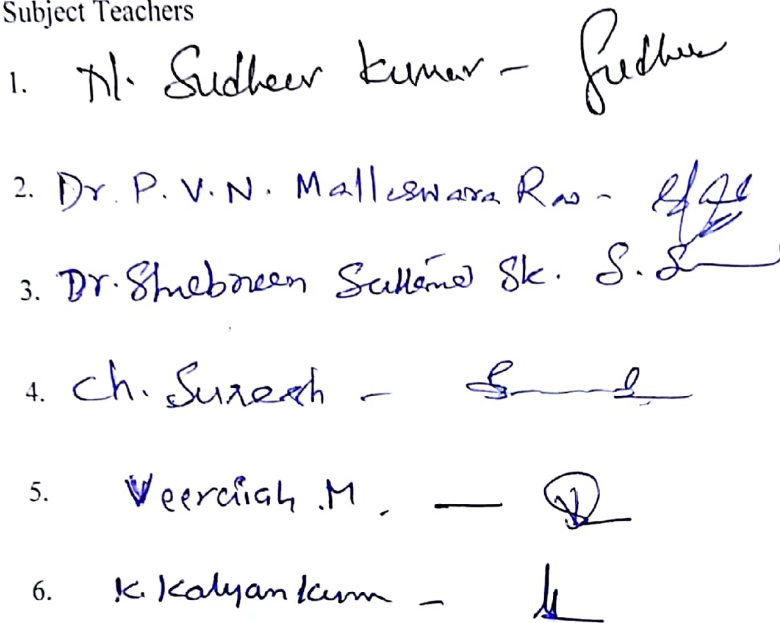 Subject Teachers
1. N. Sudheer Kumar - Sudheer
2. Dr. P. V. N. Malleswara Rao -
3. Dr. Shebareen Sultana Sk. S. S
4. Ch. Suresh -
5. Veeraiah .M. -
6. K. Kalyan kum -